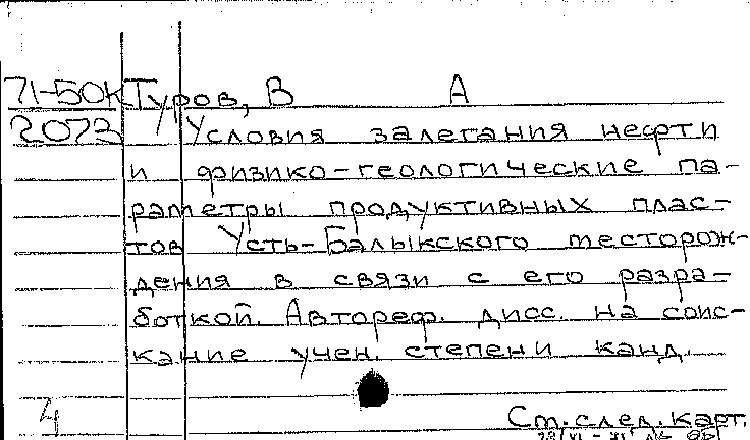 71-50К Туров, В А
2073 Условия залегания нефти
и физико-геологические па-
раметры продуктивных плас-
тов Усть-Балыкского месторож-
дения в связи с его разра-
боткой. Автореф. дисс. на соис-
кание учен. степени канд.
4 См. след. карт.